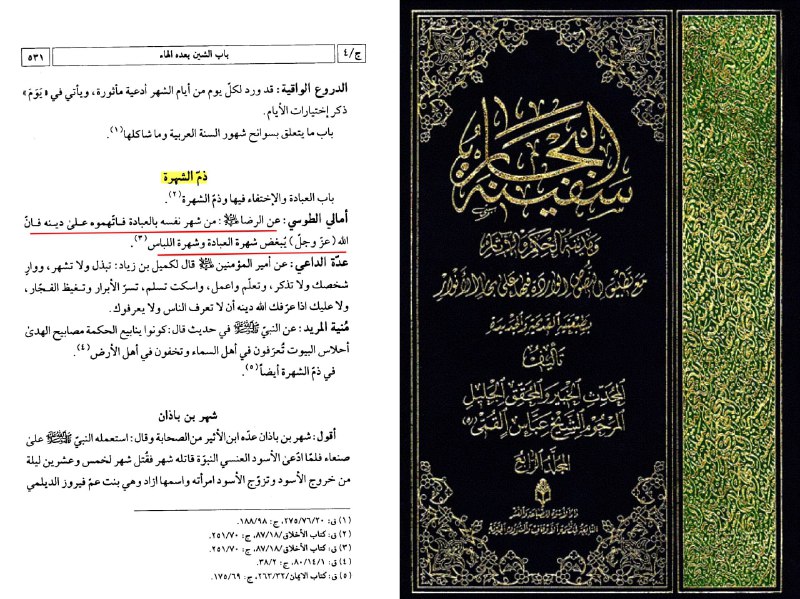 ج/٤
باب الشين بعده الهاء
٥٣١
الدروع الواقية: قد ورد لكلّ يوم من أيام الشهر أدعية مأثورة، ويأتي في «يَوَمَ»
ذكر إختيارات الأيام.
باب ما يتعلق بسوانح شهور السنة العربية وما شاكلها(١).
ذمّ الشهرة
باب العبادة والإختفاء فيها وذمّ الشهرة(٢).
أمالي الطوسي: عن الرضا ﷺ: من شهر نفسه بالعبادة فاتّهموه على دينه فانّ
الله (عزّ وجلّ) يُبغض شهرة العبادة وشهرة اللباس(٣).
عدّة الداعي: عن أمير المؤمنين قال لكميل بن زياد: تبذل ولا تشهر، ووارِ
شخصك ولا تذكر، وتعلّم واعمل، واسكت تسلم، تسرّ الأبرار وتغيظ الفجّار،
ولا عليك اذا عرّفك الله دينه أن لا تعرف الناس ولا يعرفوك.
مُنية المريد: عن النبيّ ﷺ في حديث قال: كونوا ينابيع الحكمة مصابيح الهدىٰ
أحلاس البيوت تُعرَفون في أهل السماء وتخفون في أهل الأرض(٤).
في ذمّ الشهرة أيضاً(٥).
شهر بن باذان
أقول: شهر بن باذان عدّه ابن الأثير من الصحابة وقال: استعمله النبيّ ﷺ علىٰ
صنعاء فلمّا ادّعىٰ الأسود العنسي النبوّة قاتله شهر فقُتل شهر لخمس وعشرين ليلة
من خروج الأسود وتزوّج الأسود امرأته واسمها ازاد وهي بنت عمّ فيروز الديلمي
(١) ق: ٢٧٥/٧٦/٢٠، ج: ١٨٨/٩٨.
(٢) ق: كتاب الأخلاق/٨٧/١٨، ج: ٢٥١/٧٠.
(٣) ق: كتاب الأخلاق/٨٧/١٨، ج: ٢٥١/٧٠.
(٤) ق: ٨٠/١٤/١، ج: ٣٨/٢.
(٥) ق: كتاب الايمان/٢٦٣/٣٢، ج: ١٧٥/٦٩.
سفينة البحار
ومدينة الحكم والآثار
مع تطبيق النصوص الواردة فيها على بحار الأنوار
بطبعتيه القديمة والجديدة
تأليف
المحدث الخبير والمحقق الجليل
المرحوم الشيخ عباس القمي
المجلد الرابع